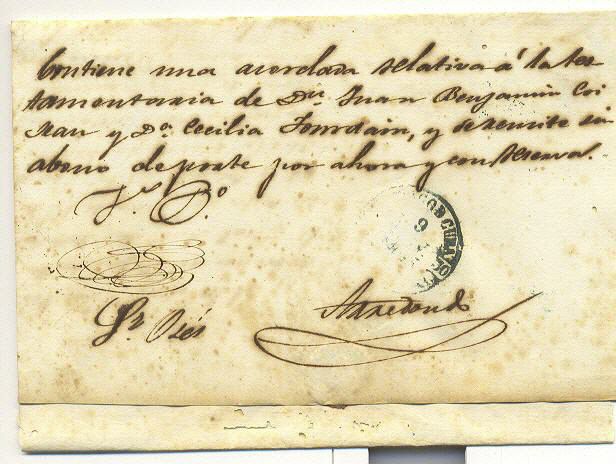 Contiene una acordada relativa á la tes
tamentaria de Dn. Juan Benjamin Coi
neau y Da. Cecilia Jourdain, y se remite sin
abono de porte por ahora y con reserva.
Sr.
Arredondo